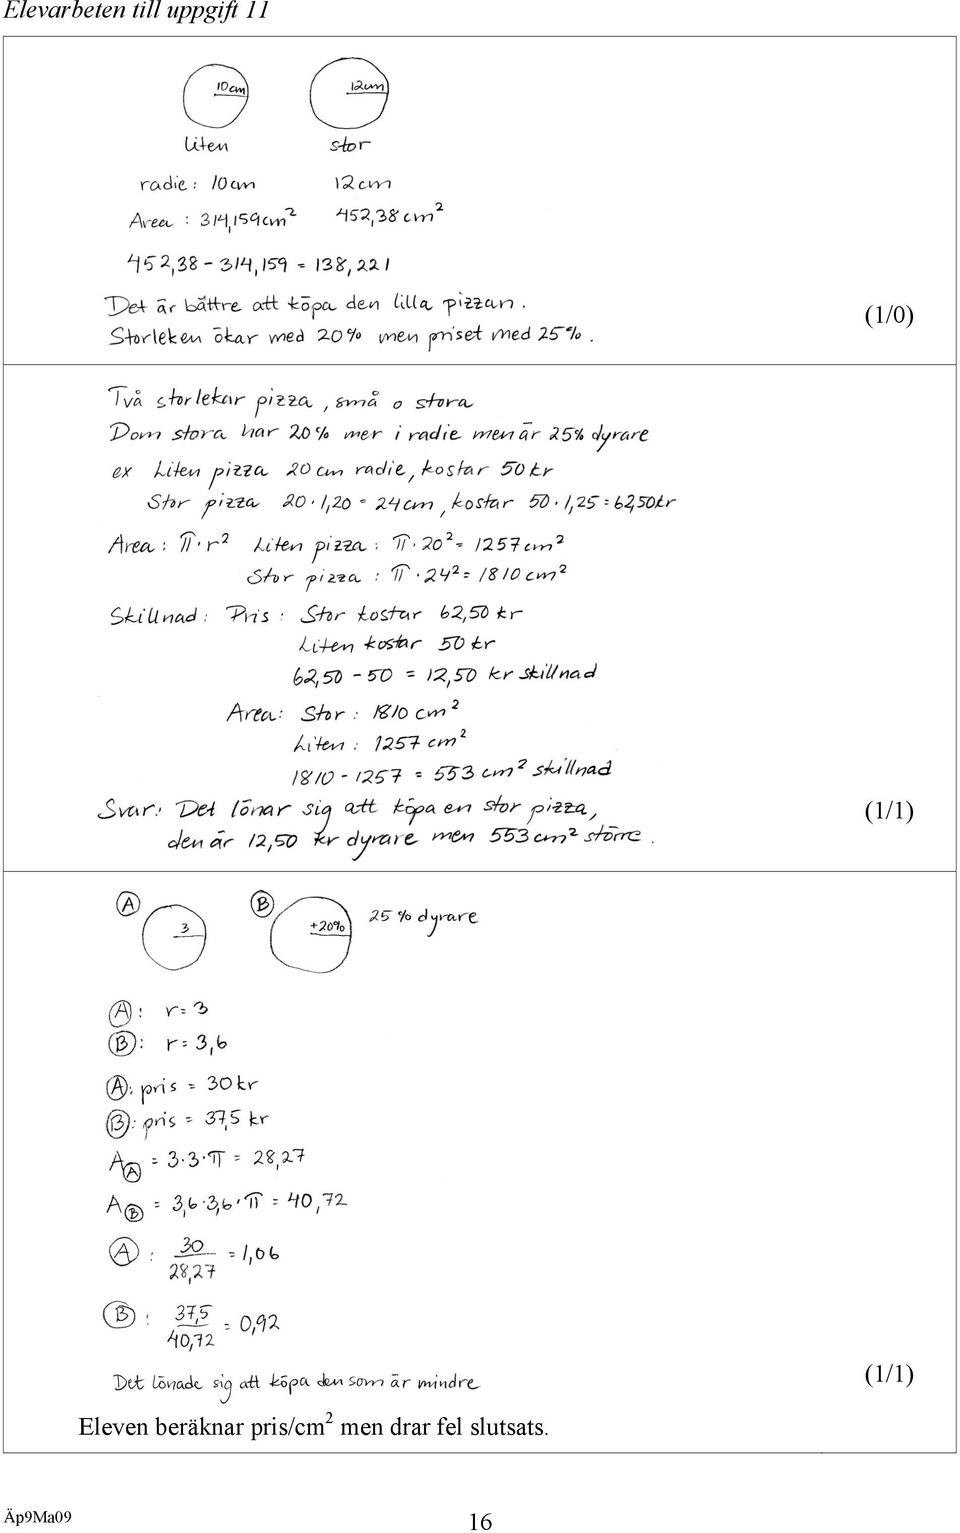 Elevarbeten till uppgift 11
10cm 12cm
liten stor
radie: 10cm 12cm
Area : 314,159cm² 452,38cm²
452,38 - 314,159 = 138,221
Det är bättre att köpa den lilla pizzan.
Storleken ökar med 20% men priset med 25%.
(1/0)
Två storlekar pizza, små o stora
Dom stora har 20% mer i radie men är 25% dyrare
ex Liten pizza 20cm radie, kostar 50kr
Stor pizza 20·1,20 = 24cm, kostar 50·1,25 = 62,50kr
Area: π·r² Liten pizza: π·20² = 1257cm²
Stor pizza : π·24² = 1810cm²
Skillnad: Pris: Stor kostar 62,50kr
Liten kostar 50kr
62,50 - 50 = 12,50 kr skillnad
Area: Stor: 1810cm²
Liten: 1257 cm²
1810 - 1257 = 553 cm² skillnad
Svar: Det lönar sig att köpa en stor pizza,
den är 12,50 kr dyrare men 553cm² större.
(1/1)
A B 25% dyrare
3 +20%
A: r=3
B: r=3,6
A: pris = 30kr
B: pris = 37,5 kr
A_A = 3·3·π = 28,27
A_B = 3,6·3,6·π = 40,72
A: 30/28,27 = 1,06
B: 37,5/40,72 = 0,92
Det lönade sig att köpa den som är mindre
(1/1)
Eleven beräknar pris/cm² men drar fel slutsats.
Äp9Ma09
16